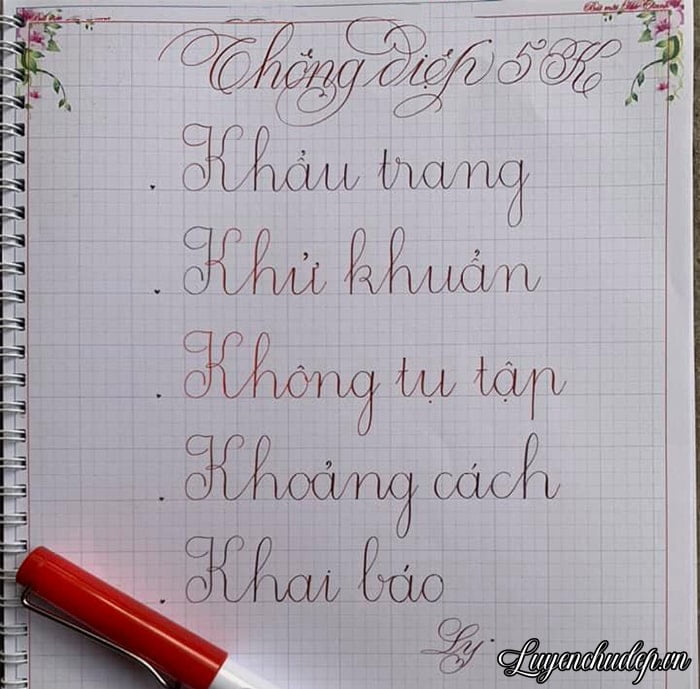 Thông điệp 5K
Khẩu trang
Khử khuẩn
Không tụ tập
Khoảng cách
Khai báo
Ly.
Luyenchudep.vn